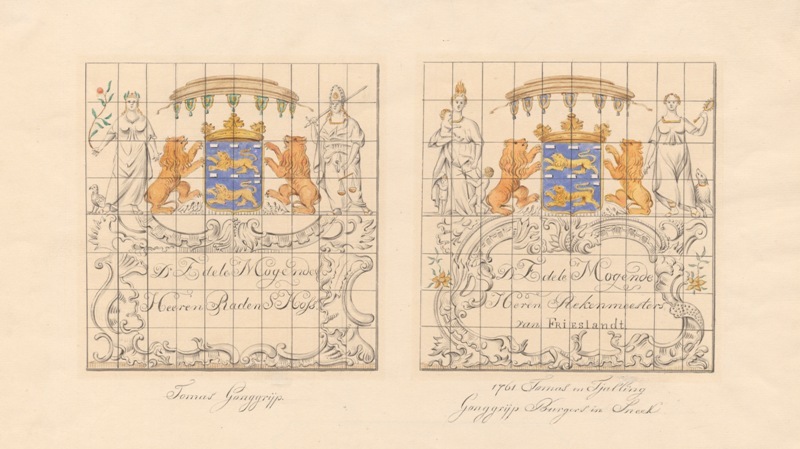 De Edele Mogende
Heeren Raden S Hofs
Tomus Ganggrijp.
De Edele Mogende
Heeren Rekenmeesters
van FRIESLANDT
1761 Tomus en Tjalling
Ganggrijp Burgers in Sneek